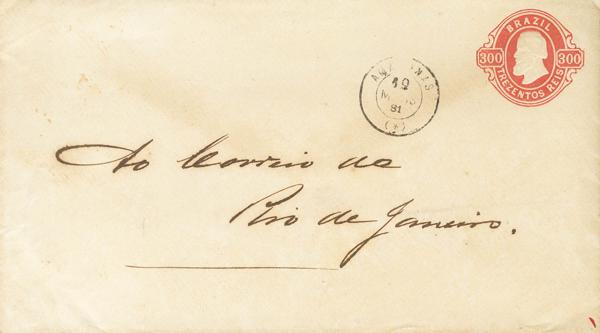 BRAZIL
300 300
TREZENTOS REIS
19
81
Ao Correio de
Rio de Janeiro.